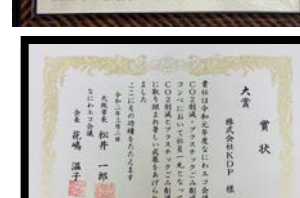 賞状
大賞
株式会社KDP 様
貴社は令和元年度なにわエコ会議
CO2削減・プラスチックごみ削減
コンペにおいて社員一丸となって
CO2削減とプラスチックごみ削減
に取り組まれ著しい成果をあげられ
ました
ここにその功績をたたえます
令和二年三月二日
大阪市長 松井 一郎
なにわエコ会議
会長 花嶋 温子